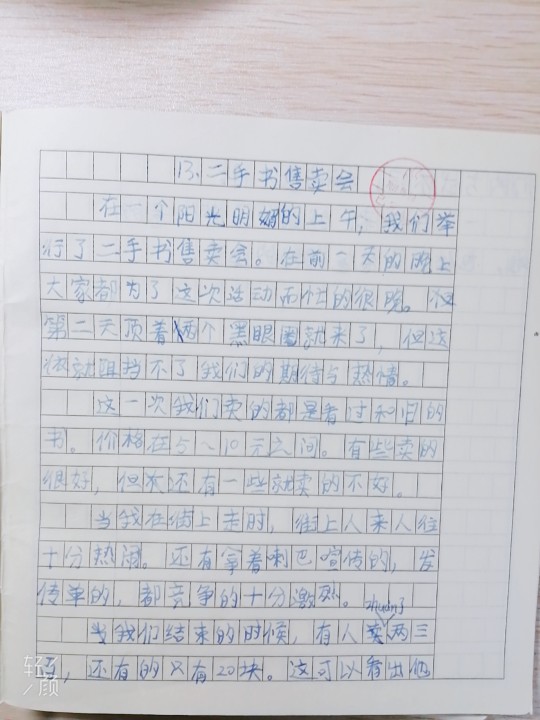 13.二手书售卖会
在一个阳光明媚的上午，我们举
行了二手书售卖会。在前一天的晚上
大家都为了这次活动而忙的很晚。
第二天顶着两个黑眼圈就来了，但这
依就阻挡不了我们的期待与热情。
这一次我们卖的都是看过和旧的
书。价格在5~10元之间。有些卖的
很好，但次还有一些就卖的不好。
当我在街上走时，街上人来人往
十分热闹。还有拿着喇巴喧传的，发
传单的，都竞争的十分激烈。
zhuàn了
当我们结束的时候，有人卖两三
百，还有的只有20块。这可以看出他
轻颜